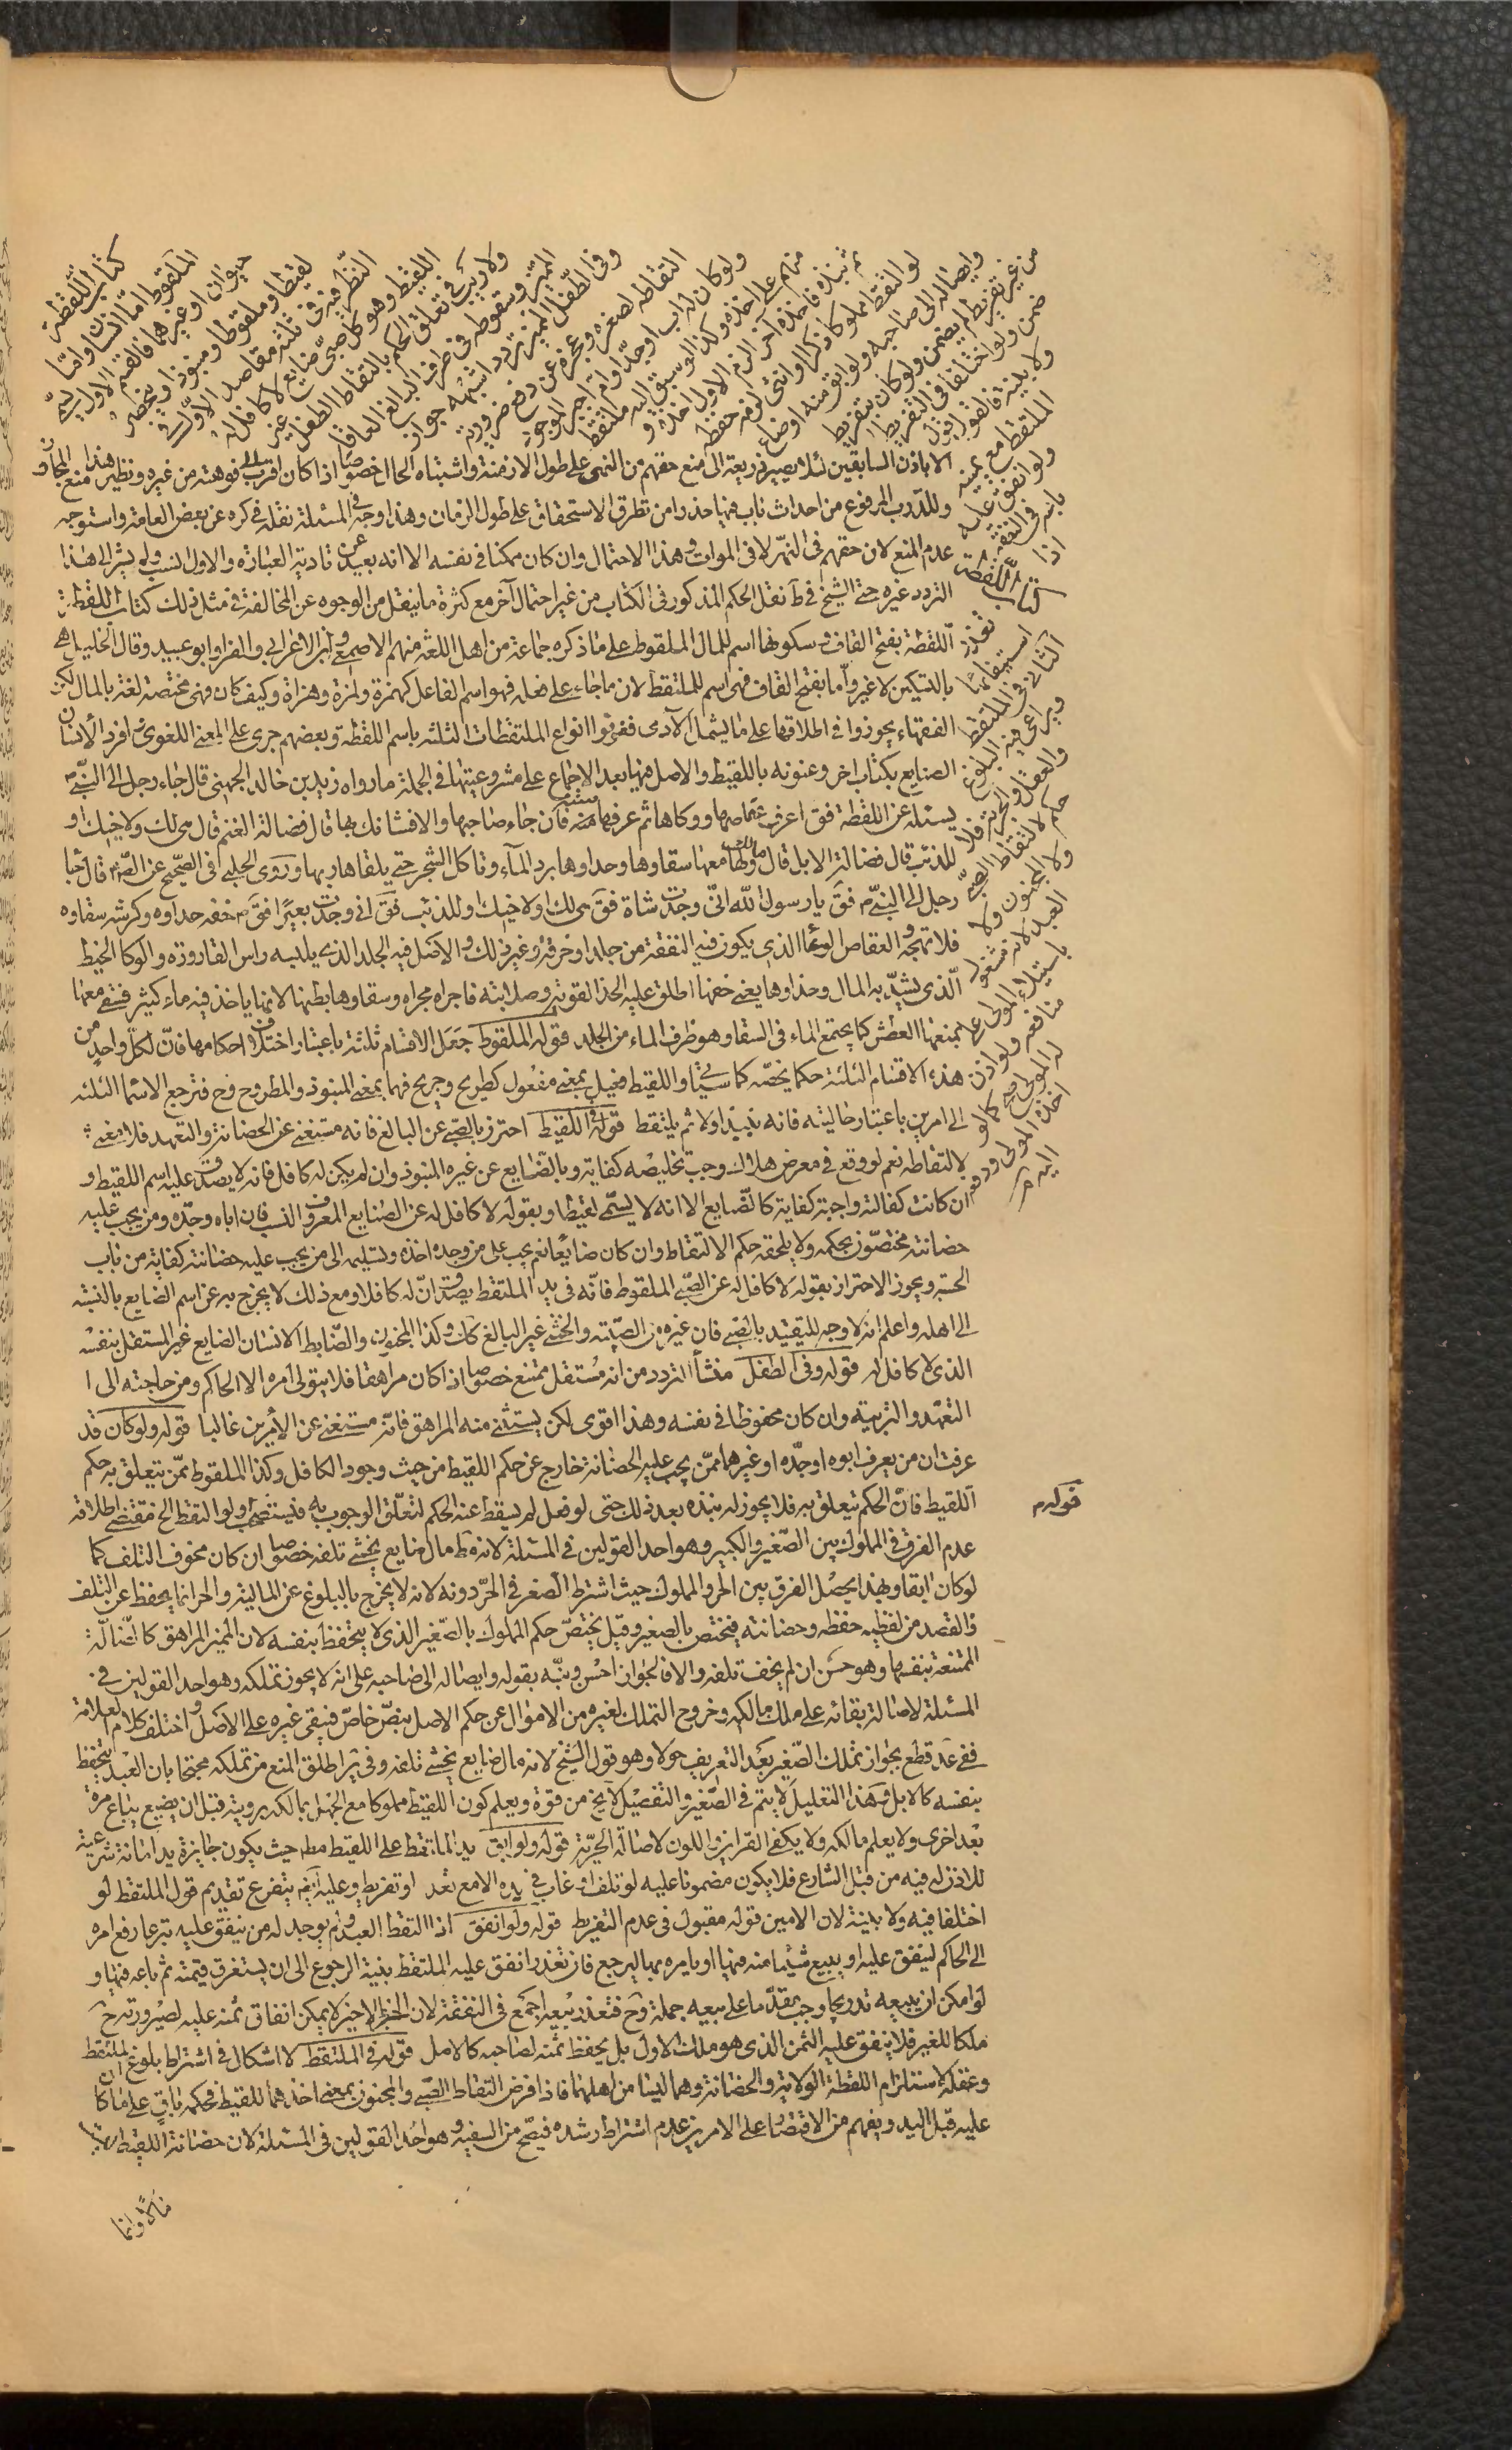 كتاب اللقطة
الملقوط اما انسان واما
حيوان او غيرهما فالقسم الاول يسمى
لقيطا وملقوطا ومنبوذا وينحصر
النظر فيه فى ثلثة مقاصد الاول فى
اللقيط وهو كل صبى ضايع لا كافل له
ولا ريب فى تعلق الحكم بالتقاط الطفل غير
المميز وسقوطه فى طرف البالغ العاقل
وفى الطفل المميز تردد اشبهه جواز
التقاطه لصغره وعجزه عن دفع ضرورته
ولو كان له اب او جد او ام اجبر الموجود
منهم على اخذه وكذا لو سبق اليه ملتقط
ثم نبذه فاخذه آخر الزم الاول اخذه و
لو التقط مملوكا ذكرا او انثى لزمه حفظه
وايصاله الى صاحبه ولو ابق منه او ضاع
من غير تفريط لم يضمن ولو كان بتفريط
ضمن ولو اختلفا فى التفريط
ولا بينة فالقول قول
الملتقط مع يمينه
ولو انفق عليه
باعه فى النفقة
اذا
تعذر
استيفائها
الثانى فى الملتقط
ويراعى فيه البلوغ
والعقل والحرية فلا
حكم لالتقاط الصبى
ولا المجنون ولا
العبد لانه مشغول
باستيلاء المولى على
منافعه ولو اذن
له المولى صح كما لو
اخذه المولى ودفعه
اليه
الا باذن السابقين لئلا يصير ذريعة الى منع حقهم من النهر على طول الازمنة واشتباه الحال خصوصا اذا كان اقرب الى فوهته من غيره ونظير هذا منع الجار
وللدرب المرفوع من احداث باب فيها حذرا من تطرق الاستحقاق على طول الزمان وهذا وجه فى المسئلة نقله فى كره عن بعض العامة واستوجه
عدم المنع لان حقهم فى النهر لا فى الموات وهذا الاحتمال وان كان ممكنا فى نفسه الا انه بعيد عن تادية العبارة والاول انسب ولم يشر الى هذا
التردد غيره حتى الشيخ فى ط نقل الحكم المذكور فى الكتاب من غير احتمال آخر مع كثرة ما ينقل من الوجوه عن المخالفة فى مثل ذلك كتاب اللقطة
اللقطة بفتح القاف وسكونها اسم للمال الملقوط على ما ذكره جماعة من اهل اللغة منهم الاصمعى وابن الاعرابى والفرا وابو عبيد وقال الخليل هى
بالتسكين لا غير واما بفتح القاف فهى اسم للملتقط لان ما جاء على فعلة فهو اسم الفاعل كهمزة ولمزة وهزاة وكيف كان فهى مختصة لغة بالمال لكن
الفقهاء تجوزوا فى اطلاقها على ما يشمل الآدمى فعرفوا انواع الملتقطات الثلثة باسم اللقطة وبعضهم جرى على المعنى اللغوى فافرد الانسان
الضايع بكتاب اخر وعنونه باللقيط والاصل فيها بعد الاجماع على مشروعيتها فى الجملة ما رواه زيد بن خالد الجهنى قال جاء رجل الى النبى
يسئله عن اللقطة فق اعرف عفاصها ووكاها ثم عرفها سنة فان جاء صاحبها والا فشانك بها قال فضالة الغنم قال هى لك ولاخيك او
للذئب قال فضالة الابل قال مالك ولها معها سقاوها وحذاوها ترد الماء وتاكل الشجر حتى يلقاها ربها وروى الحلبى فى الصحيح عن الصم قال جا
رجل الى النبى م فق يا رسول الله انى وجدت شاة فق هى لك ولاخيك وللذئب فق انى وجدت بعيرا فق م خفه حذاوه وكرشه سقاوه
فلا تهجه والعفاص الوعاء الذى يكون فيه النفقة من جلد او خرقة وغير ذلك والاصل فيه الجلد الذى يلبسه راس القارورة والوكا الخيط
الذى يشد به المال وحذاوها يعنى خفها اطلق عليه الحذا لقوته وصلابته فاجراه مجراه وسقاوها بطنها لانها ياخذ فيه ماء كثير فيبقى معها
يمنعها العطش كما يجتمع الماء فى السقا وهو ظرف الماء من الجلد قوله الملقوط جعل الاقسام ثلثة باعتبار اختلاف احكامها فان لكل واحد من
هذه الاقسام الثلثة حكما يخصه كما سياتى واللقيط فعيل بمعنى مفعول كطريح وجريح فهما بمعنى المنبوذ والمطروح وح فترجع الاسما الثلثة
الى امرين باعتبار حاليته فانه ينبذ اولا ثم يلتقط قوله فى اللقيط احترز بالصبى عن البالغ فانه مستغنى عن الحضانة والتعهد فلا معنى
لالتقاطه نعم لو وقع فى معرض هلاك وجب تخليصه كفاية وبالضايع عن غيره المنبوذ وان لم يكن له كافل فانه لا يصدق عليه اسم اللقيط و
ان كانت كفالته واجبة كفاية كالضايع الا انه لا يسمى لقيطا وبقوله لا كافل له عن الضايع المعروف النسب فان اباه وجده ومن يجب عليه
حضانته مختصون بحكمه ولا يلحقه حكم الالتقاط وان كان ضايعا نعم يجب على من وجده اخذه وتسليمه الى من يجب عليه حضانته كفاية من باب
الحسبة ويجوز الاحتراز بقوله لا كافل له عن الصبى الملقوط فانه فى يد الملتقط يصدق ان له كافلا ومع ذلك لا يخرج به عن اسم الضايع بالنسبة
الى اهله واعلم انه لا وجه للتقييد بالصبى فان غيره من الصبية والخنثى غير البالغ كك وكذا المجنون والضابط الانسان الضايع غير المستقل بنفسه
الذى لا كافل له قوله وفى الطفل منشأ التردد من انه مستقل ممتنع خصوصا اذا كان مراهقا فلا يتولى امره الا الحاكم ومن حاجته الى ا
التعهد والتربية وان كان محفوظا فى نفسه وهذا اقوى لكن يستثنى منه المراهق فانه مستغنى عن الامرين غالبا قوله ولو كان قد
عرفت ان من يعرف ابوه او جده او غيرهما ممن يجب عليه الحضانة خارج عن حكم اللقيط من حيث وجود الكافل وكذا الملقوط ممن يتعلق به حكم
اللقيط فان الحكم تعلق به فلا يجوز له نبذه بعد ذلك حتى لو فعل لم يسقط عنه الحكم لتعلق الوجوب به فيستصحب ولو التقط الخ مقتضى اطلاقه
قوله م
عدم الفرق فى المملوك بين الصغير والكبير وهو احد القولين فى المسئلة لانه ط مال ضايع يخشى تلفه خصوصا ان كان مخوف التلف كما
لو كان ابقا وبهذا يحصل الفرق بين الحر والمملوك حيث اشترط الصغر فى الحر دونه لانه لا يخرج بالبلوغ عن المالية والحر انما يحفظ عن التلف
والقصد من لقطته حفظه وحضانته فيختص بالصغير وقيل يختص حكم المملوك بالصغير الذى لا يتحفظ بنفسه لان المميز المراهق كالضالة
الممتنعة بنفسها وهو حسن ان لم يخف تلفه والا فالجواز احسن ونبه بقوله وايصاله الى صاحبه على انه لا يجوز تملكه وهو احد القولين فى
المسئلة لاصالة بقائه على ملك مالكه وخروج التملك لغيره من الاموال عن حكم الاصل بنص خاص فيبقى غيره على الاصل واختلف كلام العلامة
ففى عد قطع بجواز تملك الصغير بعد التعريف حولا وهو قول الشيخ لانه مال ضايع يخشى تلفه وفى ير اطلق المنع من تملكه محتجا بان العبد يتحفظ
بنفسه كالابل وهذا التعليل لا يتم فى الصغير والتفصيل لا يخ من قوة ويعلم كون اللقيط مملوكا مع الجهل بمالكه برويته قبل ان يضيع يباع مرة
بعد اخرى ولا يعلم مالكه ولا يكفى القراين واللون لاصالة الحرية قوله ولو ابق يد الملتقط على اللقيط مطلقا حيث يكون جايزة يد امانة شرعية
للاذن له فيه من قبل الشارع فلا يكون مضمونا عليه لو تلف او غاب فى يده الا مع تعد او تفريط وعليه ايضا يتفرع تقديم قول الملتقط لو
اختلفا فيه ولا بينة لان الامين قوله مقبول فى عدم التفريط قوله ولو انفق اذا التقط العبد ولم يوجد له من ينفق عليه تبرعا رفع امره
الى الحاكم لينفق عليه او يبيع شيئا منه فيها او يامره بها ليرجع فان تعذر انفق عليه الملتقط بنية الرجوع الى ان يستغرق قيمته ثم باعه فيها و
لو امكن ان يبيعه تدريجا وجب مقدما على بيعه جملة وح فتعذر بيعه اجمع فى النفقة لان الجزء الاخير لا يمكن انفاق ثمنه عليه لصيرورته ح
ملكا للغير فلا ينفق عليه الثمن الذى هو ملك الاول بل يحفظ ثمنه لصاحبه كالاصل قوله فى الملتقط لا اشكال فى اشتراط بلوغ الملتقط
وعقله لاستلزام اللقطة الولاية والحضانة وهما ليسا من اهلهما فاذا فرض التقاط الصبى والمجنون بمعنى اخذهما للقيط فحكمه باق على ما كان
عليه قبل اليد ويفهم من الاقتصار على الامرين عدم اشتراط رشده فيصح من السفيه وهو احد القولين فى المسئلة لان حضانة اللقيط ليست
مالا وانما